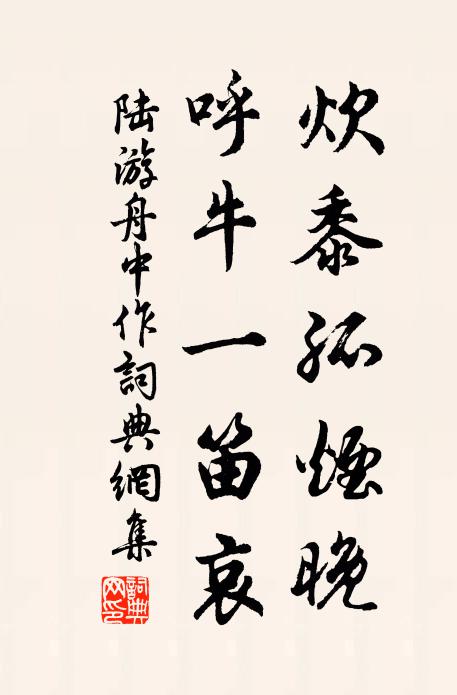 炊黍孤煙晚
呼牛一笛哀
陆游舟中作詞典網集
詞典網印